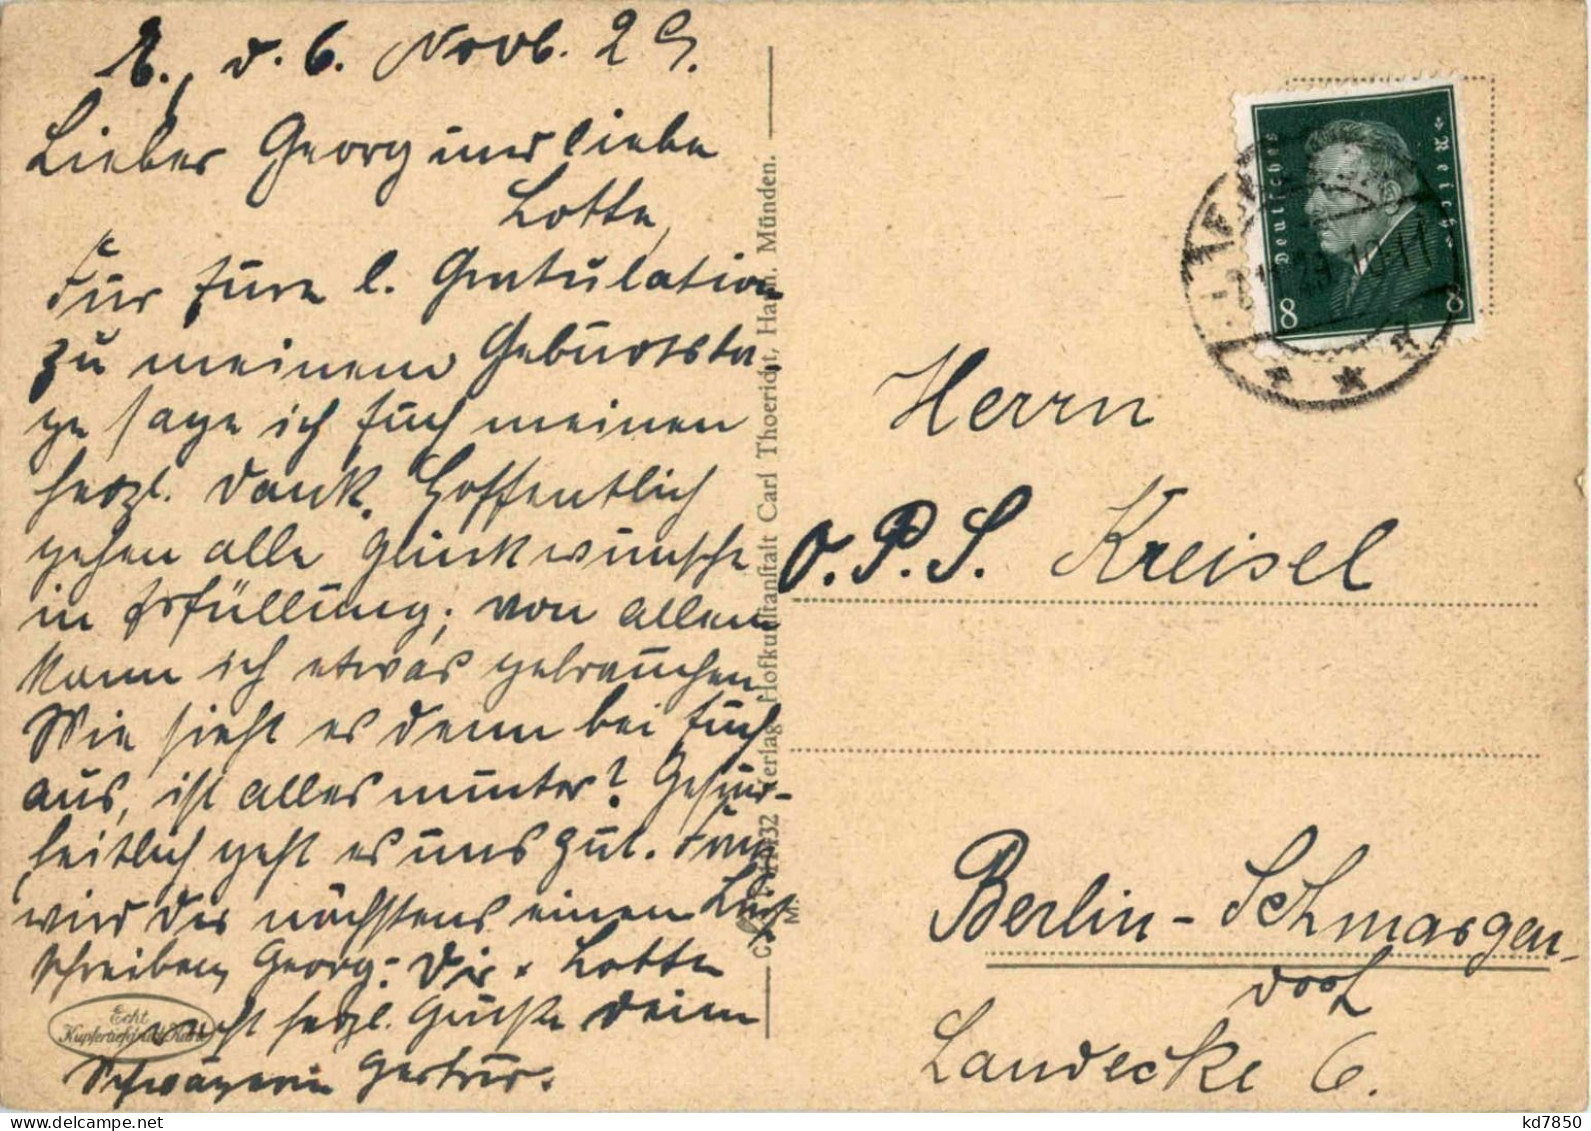 E., d. 6. Novb. 29.
Lieber Georg und liebe
Lotte,
Für Eure l. Gratulation
zu meinem Geburtsta-
ge sage ich Euch meinen
herzl. Dank. Hoffentlich
gehen alle Glückwünsche
in Erfüllung; von allem
kann ich etwas gebrauchen.
Wie sieht es denn bei Euch
aus, ist alles munter? Gesund-
heitlich geht es uns gut.
wird Dir nächstens einen
schreiben, Georg. Dir u. Lotte
herzl. Grüße Deine
Schwägerin Gertrud.
Echt
Kupfertiefdruck
Verlag Hofkunstanstalt Carl Thoericht, Hann. Münden.
Deutsches Reich
8 8
8.11.29. 10-11
Herrn
O.P.S. Kreisel
Berlin-Schmargen-
dorf
Landecke 6.
kd7850